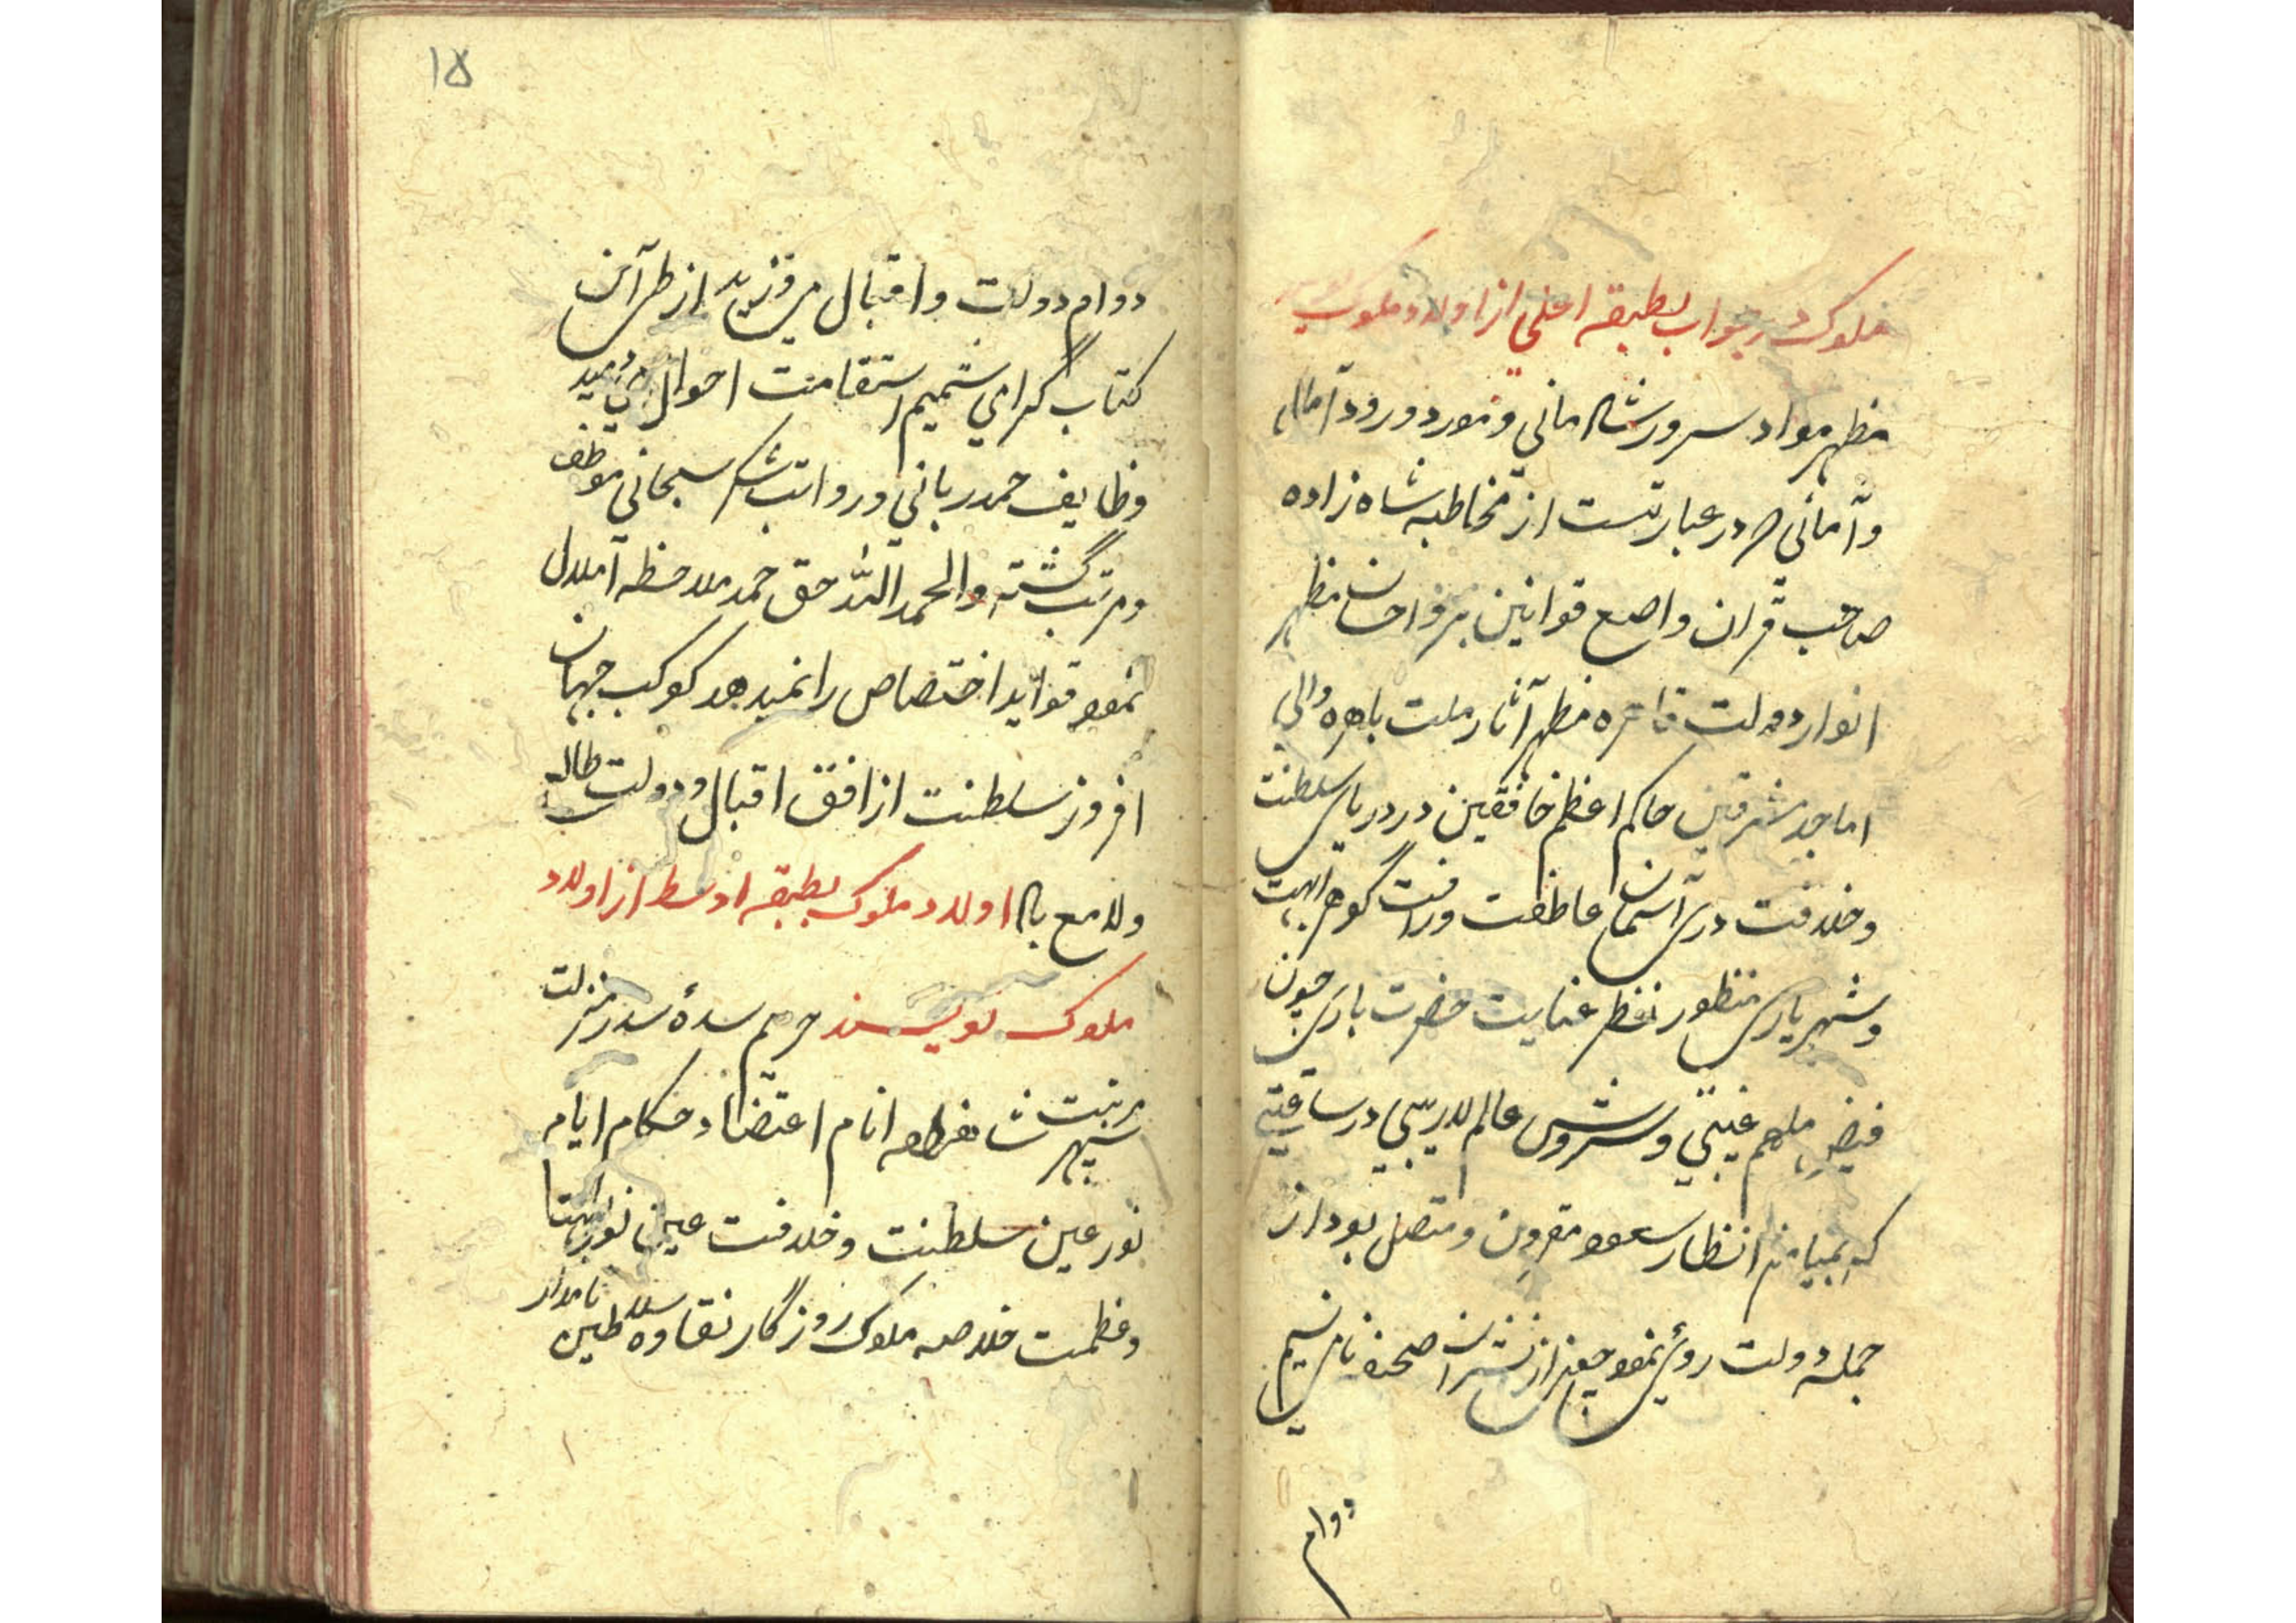 ملوک در جواب بطبقه اعلی از اولاد ملوک
مظهر مواد سرور شادمانی و مورد ورود آمال
و آمانی صدر عبارتست از مخاطبه شاه زاده
صاحب قران واضع قوانین بر و احسان مظهر
انوار دولت قاهره مظهر آثار ملت باهره والی
اماجد مشرقین حاکم اعظم خافقین در دریای سلطنت
و خلافت دری آسمان عاطفت و رافت گوهر ابهت
و شهریاری منظور نظر عنایت حضرت باری چون
فیض ملهم غیبی و سروش عالم لاریبی در ساعتی
که بمیامن انظار سعود مقرون و متصل بود از
جمله دولت روی نمود از صحنه نامی نسیم
دوام
۱۵
دوام دولت و اقبال می وزید از طی آن
کتاب گرامی شمیم استقامت احوال می دمید
وظایف حمد ربانی و رواتب شکر سبحانی موظف
و مرتب گشته و الحمد الله حق حمد ملاحظه
نمود قواید اختصاص را نمیدهد کوکب جهان
افروز سلطنت از افق اقبال و دولت طالع
و لامع باد اولاد ملوک بطبقه اوسط از اولاد
ملوک نویسند حریم سدهٔ سدره منزلت
سپهر مرتبت شاهزاده انام اعتضاد حکام ایام
نور عین سلطنت و خلافت عین نور ابهت
و عظمت خلاصه ملوک روزگار نقاوه سلاطین نامدار